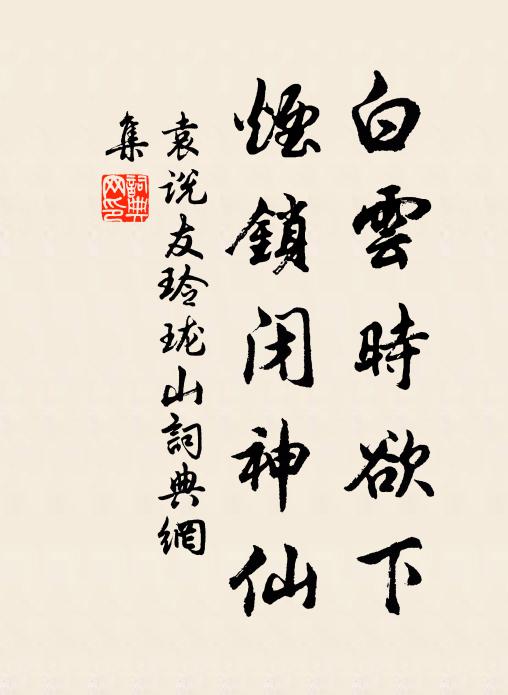 白雲時欲下
煙鎖閉神仙
袁说友玲珑山詞典網
集
詞典
网印